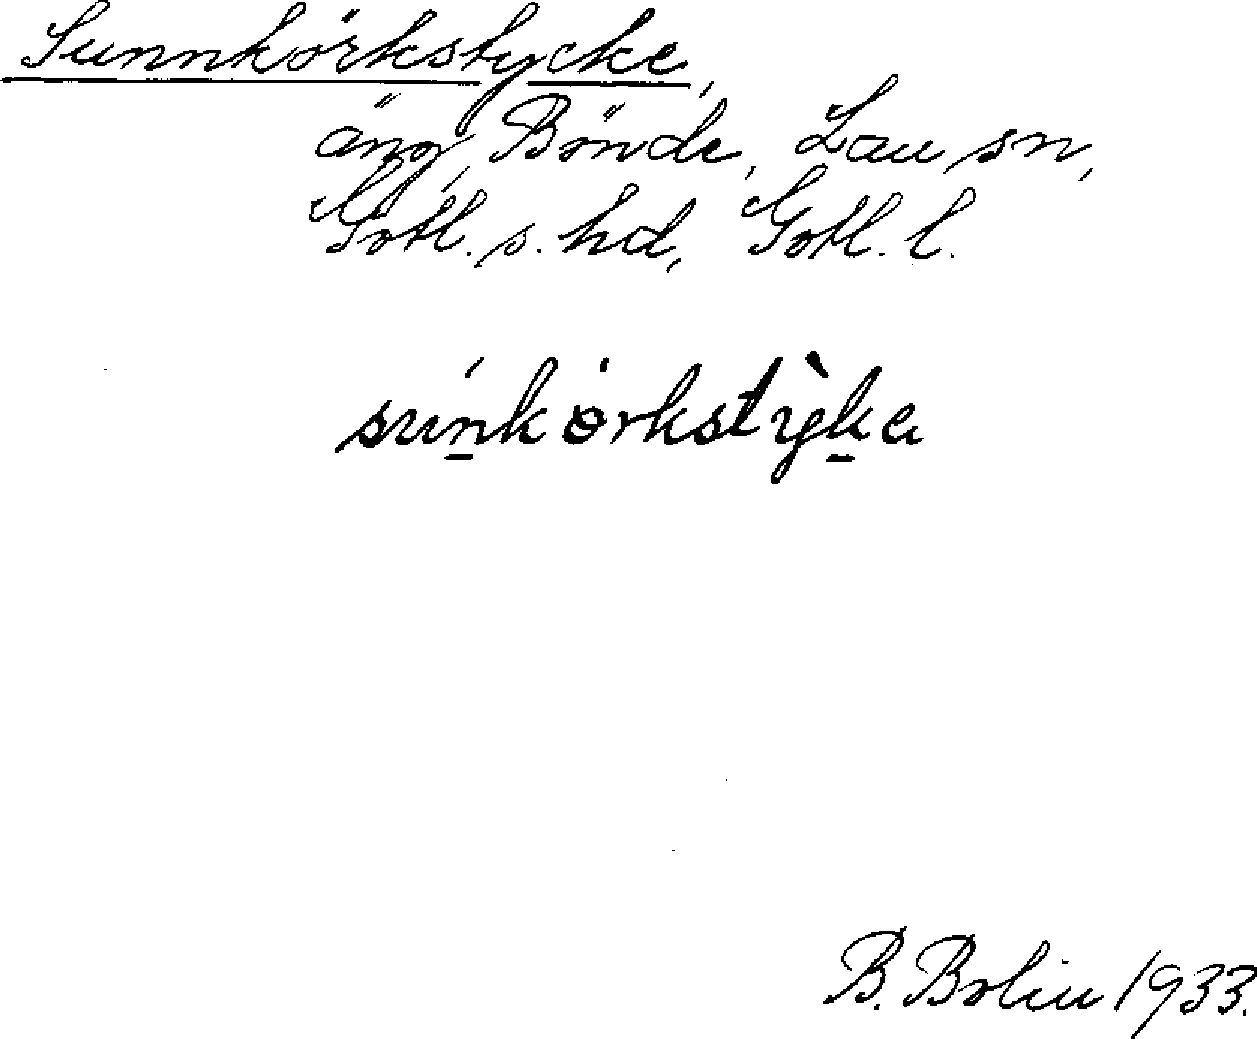 Sunnkörkstycke,
äng, Bönde, Lau sn,
Gotl. s. hd, Gotl. l.
sún̲körkstỳk̲a
B. Bolin 1933.